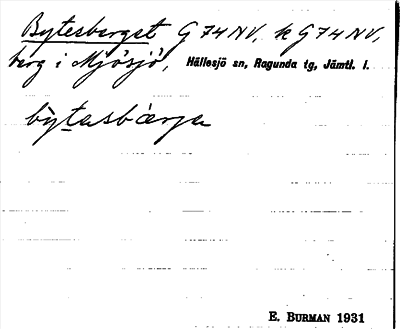 Bytesberget G 74 NV, k G 74 NV,
berg i Mjösjö, Hällesjö sn, Ragunda tg, Jämtl. l.
bỳtasbærja
E. BURMAN 1931